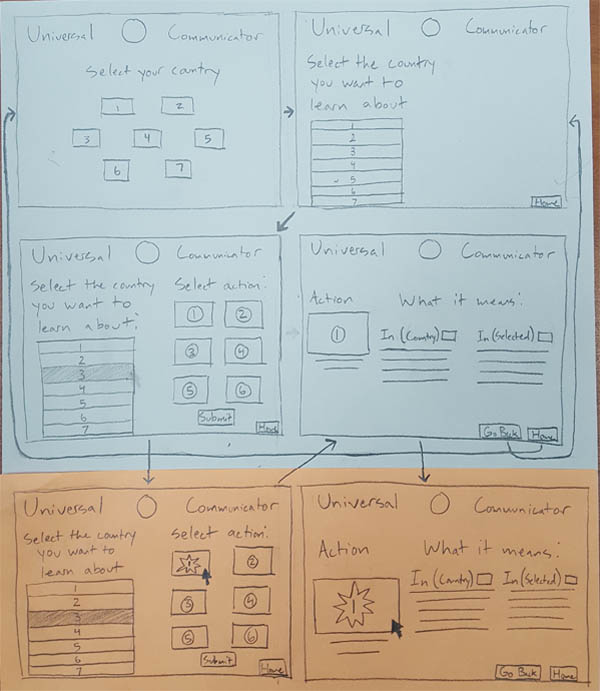 Universal Communicator
Select your country
1 2
3 4 5
6 7
Universal Communicator
Select the country
you want to
learn about
1
2
3
4
5
6
7
Home
Universal Communicator
Select the country
you want to
learn about:
1
2
3
4
5
6
7
Select action:
1 2
3 4
5 6
Submit
Home
Universal Communicator
Action
1
What it means:
In (Country)
In (Selected)
Go Back
Home
Universal Communicator
Select the country
you want to
learn about
1
2
3
4
5
6
7
Select action:
1 2
3 4
5 6
Submit
Home
Universal Communicator
Action
1
What it means:
In (Country)
In (Selected)
Go Back
Home